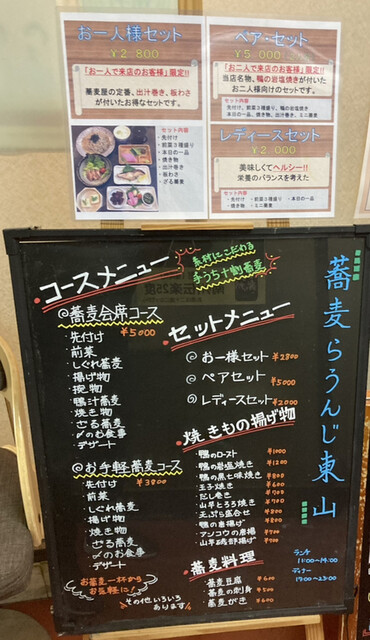 お一人様セット
￥2,800
「お一人で来店のお客様」限定!!
蕎麦屋の定番、出汁巻き、板わさ
が付いたお得なセットです。
セット内容
・先付け
・前菜3種盛り
・本日の一品
・焼き物
・出汁巻き
・板わさ
・ざる蕎麦
ペア・セット
￥5,000
「お二人で来店のお客様」限定!!
当店名物、鴨の岩塩焼きが付いた
お二人様向けのセットです。
セット内容
・先付け ・前菜3種盛り ・鴨の岩塩焼き
・本日の一品 ・焼き物、出汁巻き、ミニ蕎麦
レディースセット
￥2,000
美味しくてヘルシー!!
栄養のバランスを考えた
セット内容
・先付け ・前菜3種盛り ・本日の一品
・焼き物 ・ミニ蕎麦
素材にこだわる
手うち十割蕎麦
・コースメニュー
@蕎麦会席コース
￥5000
・先付け
・前菜
・しぐれ蕎麦
・揚げ物
・椀物
・鴨汁蕎麦
・焼き物
・ざる蕎麦
・〆のお食事
・デザート
@お手軽蕎麦コース
・先付け ￥3800
・前菜
・しぐれ蕎麦
・揚げ物
・焼き物
・ざる蕎麦
・〆のお食事
・デザート
お蕎麦一杯から
お気軽に!
その他いろいろ
あります
・セットメニュー
@お一様セット ￥2800
@ペアセット ￥5000
@レディースセット ￥2000
・焼きもの揚げ物
・鴨のロースト ￥1000
・鴨の岩塩焼き ￥1200
・鴨の黒七味焼き ￥800
・玉子焼き ￥600
・だし巻き ￥700
・山芋とろろ焼き ￥700
・天ぷら盛合せ ￥800
・鴨の唐揚げ ￥800
・アンコウの唐揚 ￥700
・山芋の海苔揚げ ￥700
・蕎麦料理
・蕎麦豆腐 ￥400
・蕎麦の刺身 ￥500
・蕎麦がき ￥600
蕎麦らうんじ東山
ランチ
11:00〜14:00
ディナー
17:00〜23:00